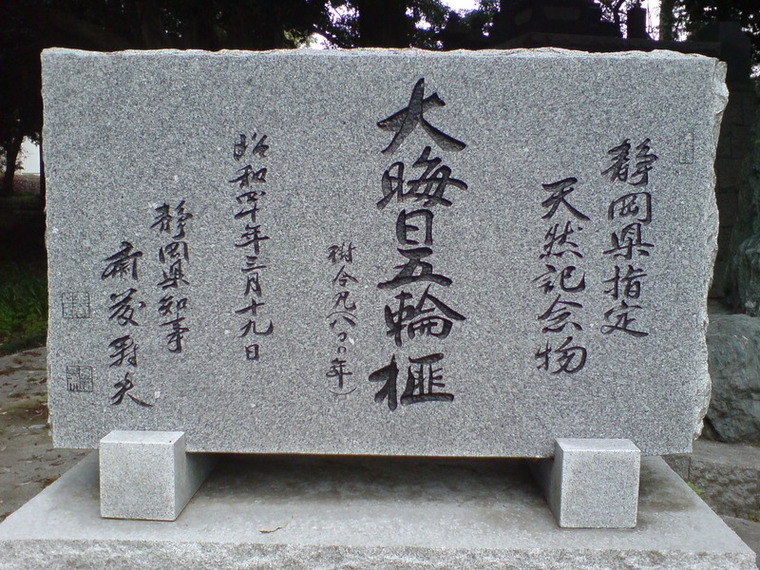 静岡県指定
天然記念物
大晦日五輪榧
樹令凡八〇〇年)
昭和四十年三月十九日
静岡県知事
斎藤寿夫